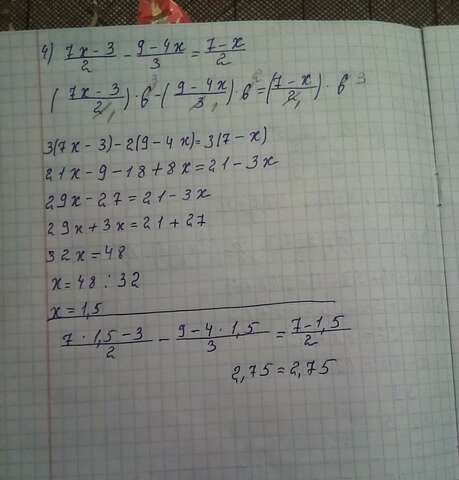 4) (7x-3)/2 - (9-4x)/3 = (7-x)/2
((7x-3)/2,)·6³-((9-4x)/3,)·6²=((7-x)/2,)·6 3
3(7x-3)-2(9-4x)=3(7-x)
21x-9-18+8x=21-3x
29x-27=21-3x
29x+3x=21+27
32x=48
x=48:32
x=1,5
(7·1,5-3)/2 - (9-4·1,5)/3 = (7-1,5)/2
2,75=2,75